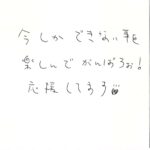 今しかできない事を
楽しんでがんばろぉ!
応援してまう